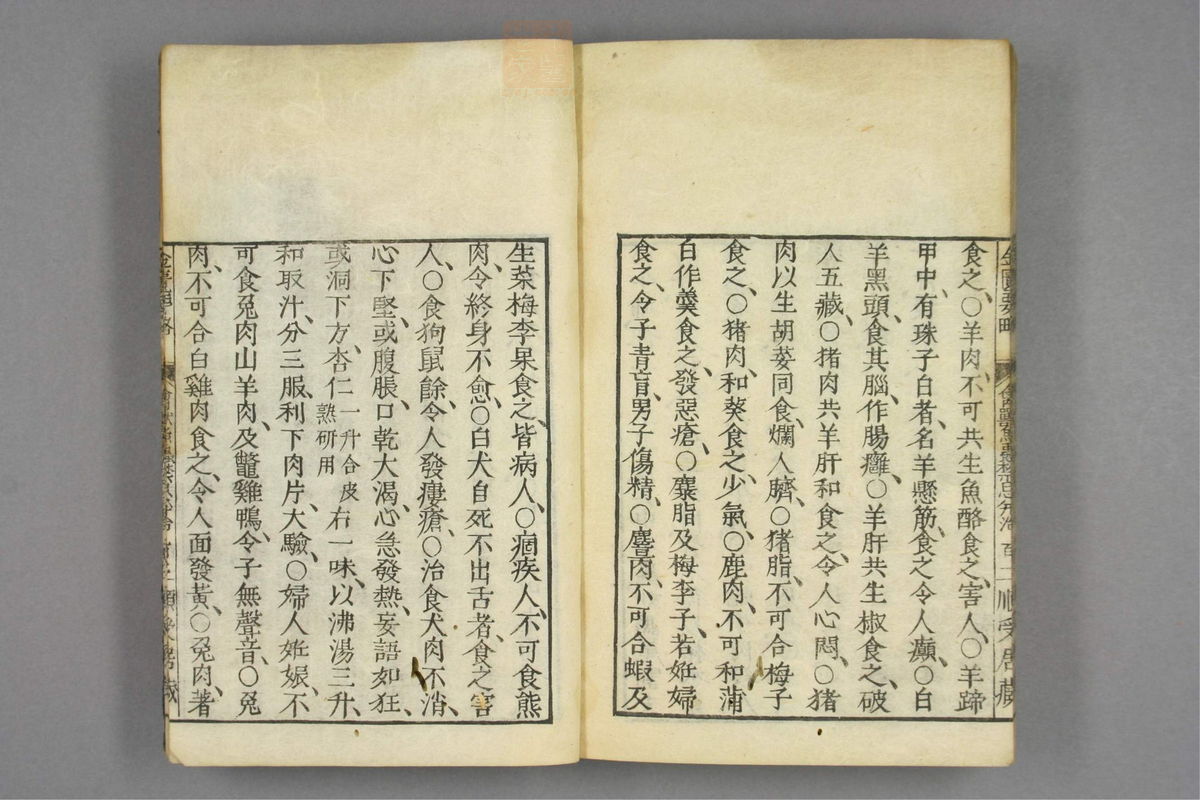 食之、○羊肉、不可共生魚酪食之、害人、○羊蹄
甲中、有珠子白者、名羊懸筋、食之令人癲、○白
羊黑頭、食其腦、作腸癰、○羊肝共生椒食之、破
人五藏、○猪肉共羊肝和食之、令人心悶、○猪
肉以生胡荽同食、爛人臍、○猪脂、不可合梅子
食之、○猪肉、和葵食之、少氣、○鹿肉、不可和蒲
白作羹食之、發惡瘡、○麋脂及梅李子、若妊婦
食之、令子青盲、男子傷精、○麞肉、不可合蝦及
生菜梅李果食之、皆病人、○痼疾人、不可食熊
肉、令終身不愈、○白犬自死不出舌者、食之害
人、○食狗鼠餘、令人發瘻瘡、○治食犬肉不消、
心下堅、或腹脹、口乾大渴、心急發熱、妄語如狂、
或洞下方、杏仁一升合皮熟研用右一味、以沸湯三升、
和取汁、分三服、利下肉片、大驗、○婦人妊娠、不
可食兔肉山羊肉、及鼈雞鴨、令子無聲音、○兔
肉、不可合白雞肉食之、令人面發黃、○兔肉、著